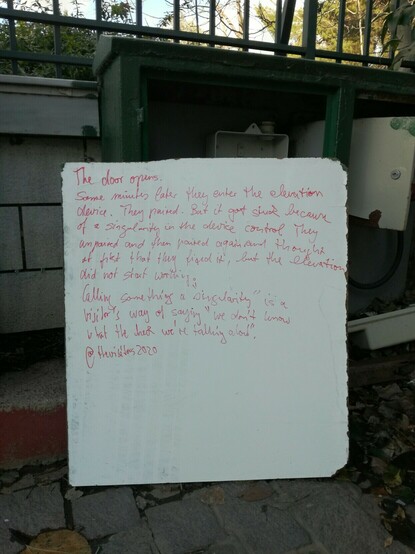 The door opens.
Some minutes later they enter the elevation
device. They paired. But it got stuck because
of a singularity in the device control. They
unpaired and then paired again and thought
at first that they fixed it, but the elevation
did not start working.
Calling something a "singularity" is a
visitor's way of saying "we don't know
what the heck we're talking about".
@thevisitors2020